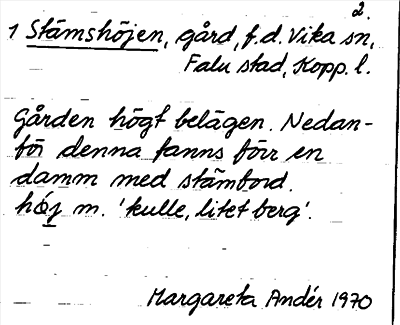 2.
1 Stämshöjen, gård, f.d. Vika sn,
Falu stad, Kopp. l.
Gården högt belägen. Nedan-
för denna fanns förr en
damm med stämbord.
höj m. 'kulle, litet berg'.
Margareta Andér 1970